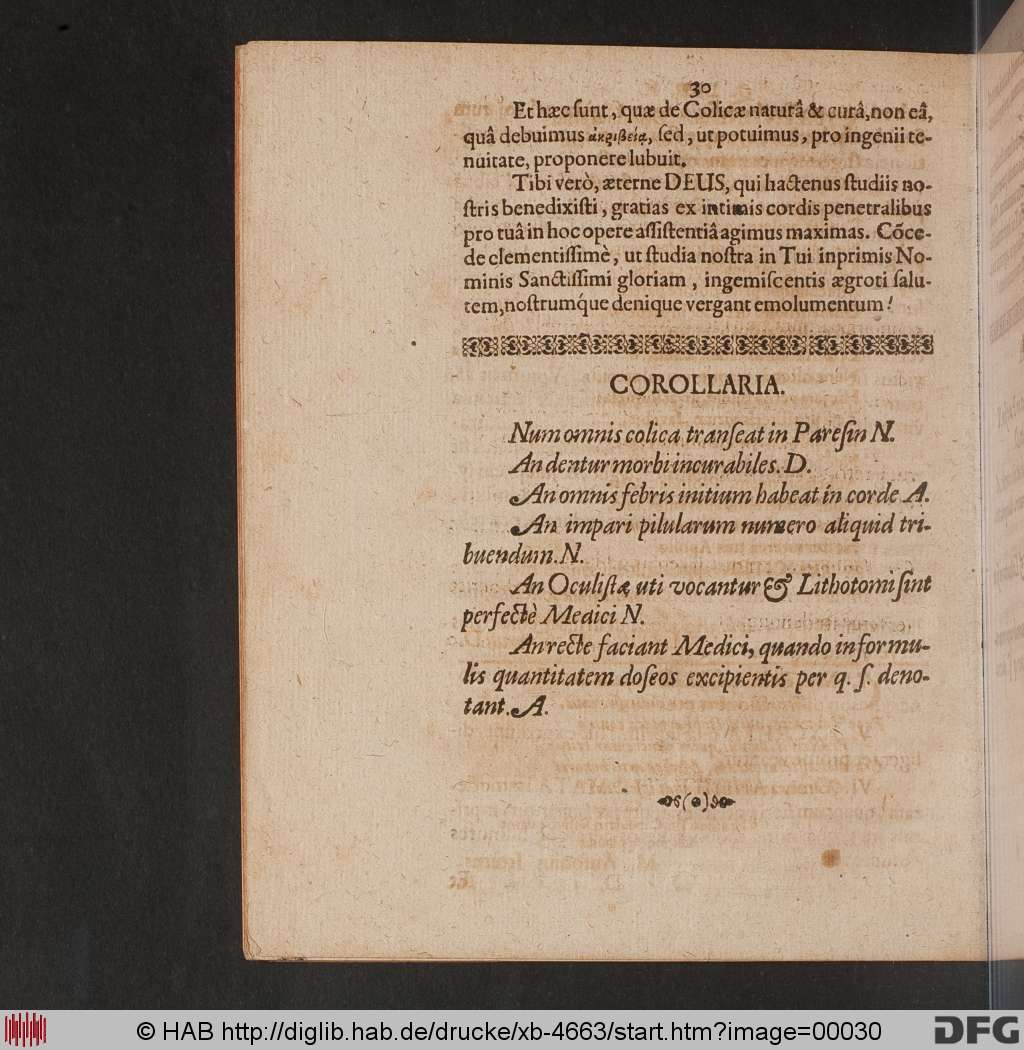 30
Et hæc ſunt, quæ de Colicæ naturâ & curâ, non eâ,
quâ debuimus ἀκριβείᾳ, ſed, ut potuimus, pro ingenii te-
nuitate, proponere lubuit.
Tibi verò, æterne DEUS, qui hactenus ſtudiis no-
ſtris benedixiſti, gratias ex intimis cordis penetralibus
pro tuâ in hoc opere aſſiſtentiâ agimus maximas. Cōce-
de clementiſſimè, ut ſtudia noſtra in Tui inprimis No-
minis Sanctiſſimi gloriam, ingemiſcentis ægroti ſalu-
tem, noſtrumq́ue denique vergant emolumentum!
COROLLARIA.
Num omnis colica tranſeat in Pareſin N.
An dentur morbi incurabiles. D.
An omnis febris initium habeat in corde A.
An impari pilularum numero aliquid tri-
buendum. N.
An Oculiſtæ uti vocantur & Lithotomi ſint
perfectè Medici N.
An recte faciant Medici, quando in formu-
lis quantitatem doſeos excipientis per q. ſ. deno-
tant. A.
© HAB http://diglib.hab.de/drucke/xb-4663/start.htm?image=00030
DFG